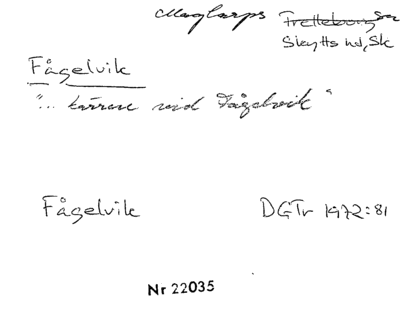 Maglarps Trelleborg sn
Skytts hd, Sk
Fågelvik
"... kärren vid Fågelvik"
Fågelvik DGTr 1972:81
Nr 22035